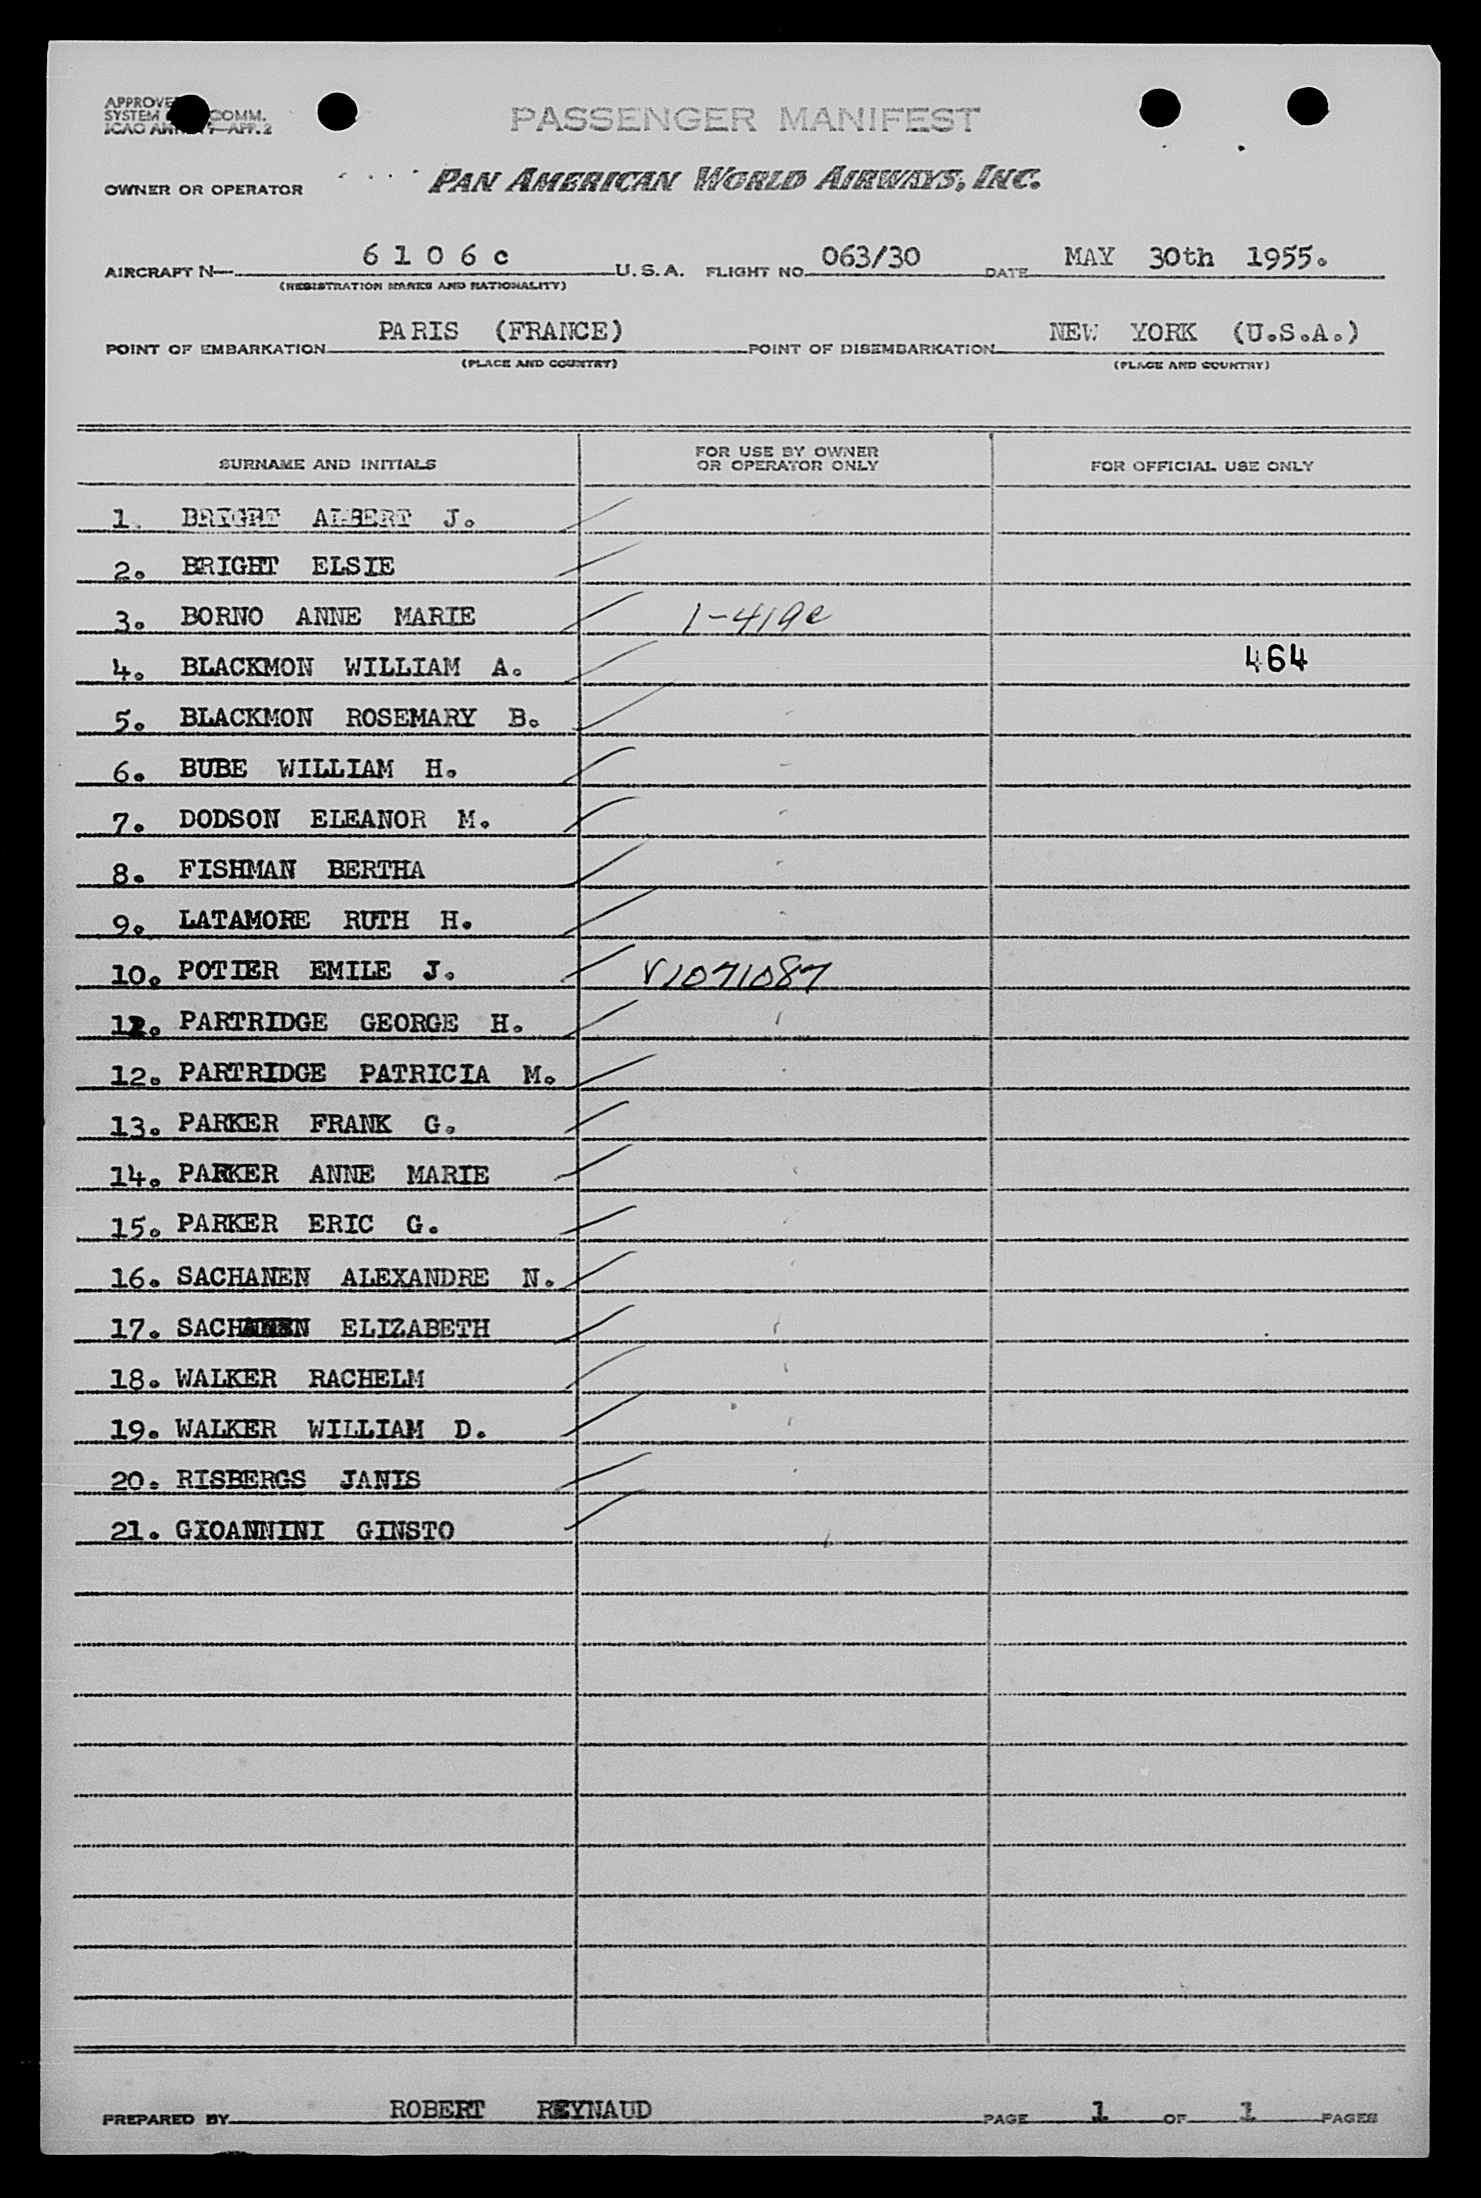 PASSENGER MANIFEST
SYSTEM COMM.
ICAO APP. 2
OWNER OR OPERATOR PAN AMERICAN WORLD AIRWAYS, INC.
AIRCRAFT N— 6 1 0 6 c U.S.A. FLIGHT NO. 063/30 DATE MAY 30th 1955.
(REGISTRATION MARKS AND NATIONALITY)
POINT OF EMBARKATION PARIS (FRANCE) POINT OF DISEMBARKATION NEW YORK (U.S.A.)
(PLACE AND COUNTRY) (PLACE AND COUNTRY)
SURNAME AND INITIALS FOR USE BY OWNER OR OPERATOR ONLY FOR OFFICIAL USE ONLY
1. BRIGHT ALBERT J.
2. BRIGHT ELSIE
3. BORNO ANNE MARIE 1-419c
4. BLACKMON WILLIAM A. 464
5. BLACKMON ROSEMARY B.
6. BUBE WILLIAM H.
7. DODSON ELEANOR M.
8. FISHMAN BERTHA
9. LATAMORE RUTH H.
10. POTIER EMILE J. V1071087
11. PARTRIDGE GEORGE H.
12. PARTRIDGE PATRICIA M.
13. PARKER FRANK G.
14. PARKER ANNE MARIE
15. PARKER ERIC G.
16. SACHANEN ALEXANDRE N.
17. SACHANEN ELIZABETH
18. WALKER RACHELM
19. WALKER WILLIAM D.
20. RISBERGS JANIS
21. GIOANNINI GINSTO
PREPARED BY ROBERT REYNAUD PAGE 1 OF 1 PAGES